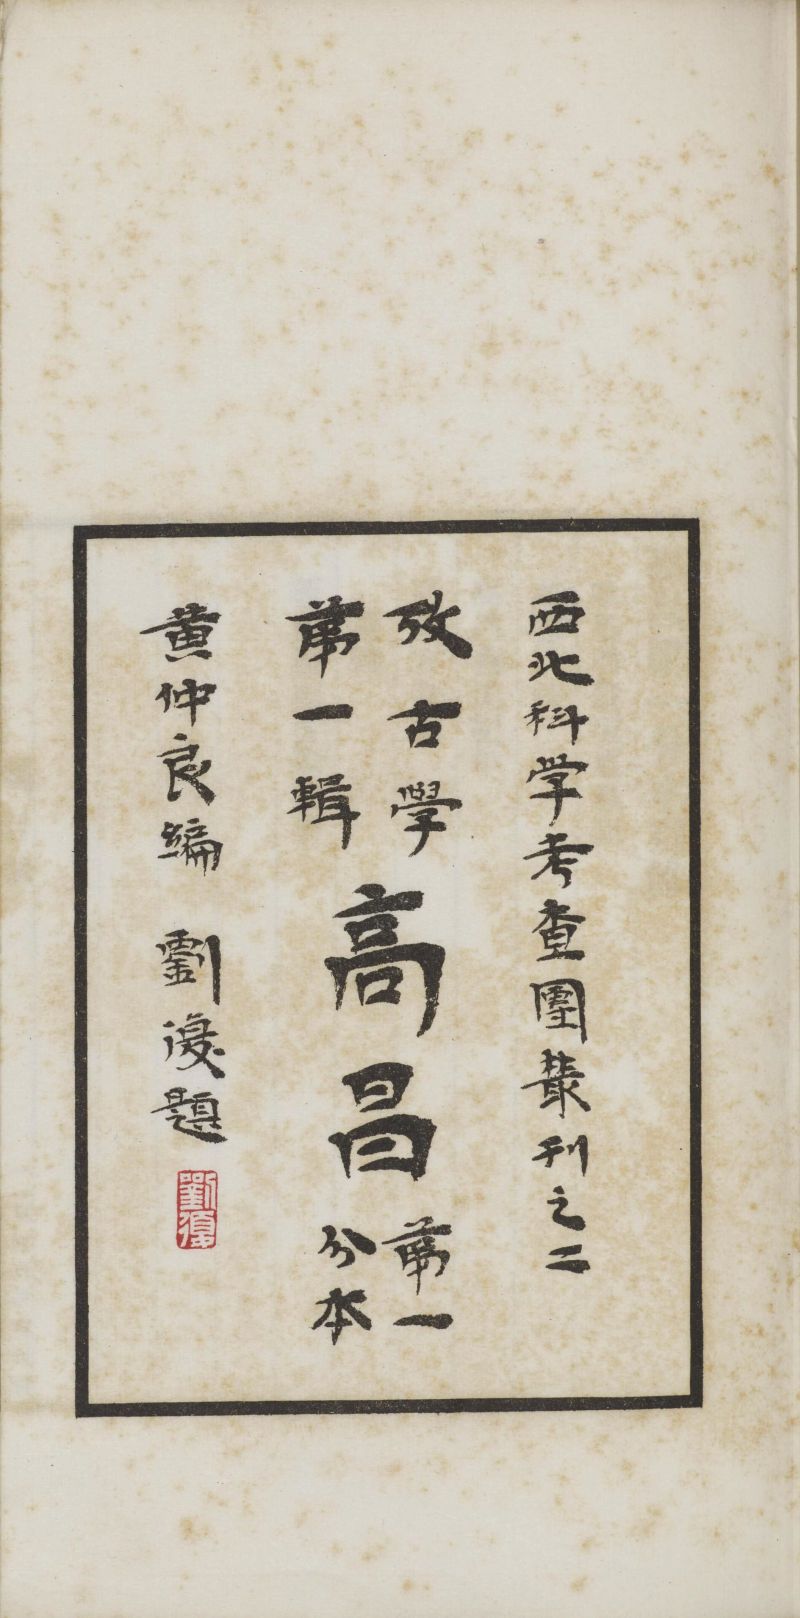 西北科学考查團叢刊之二
攷古學
第一輯
高昌
第一
分本
黃仲良編 劉復題
劉復